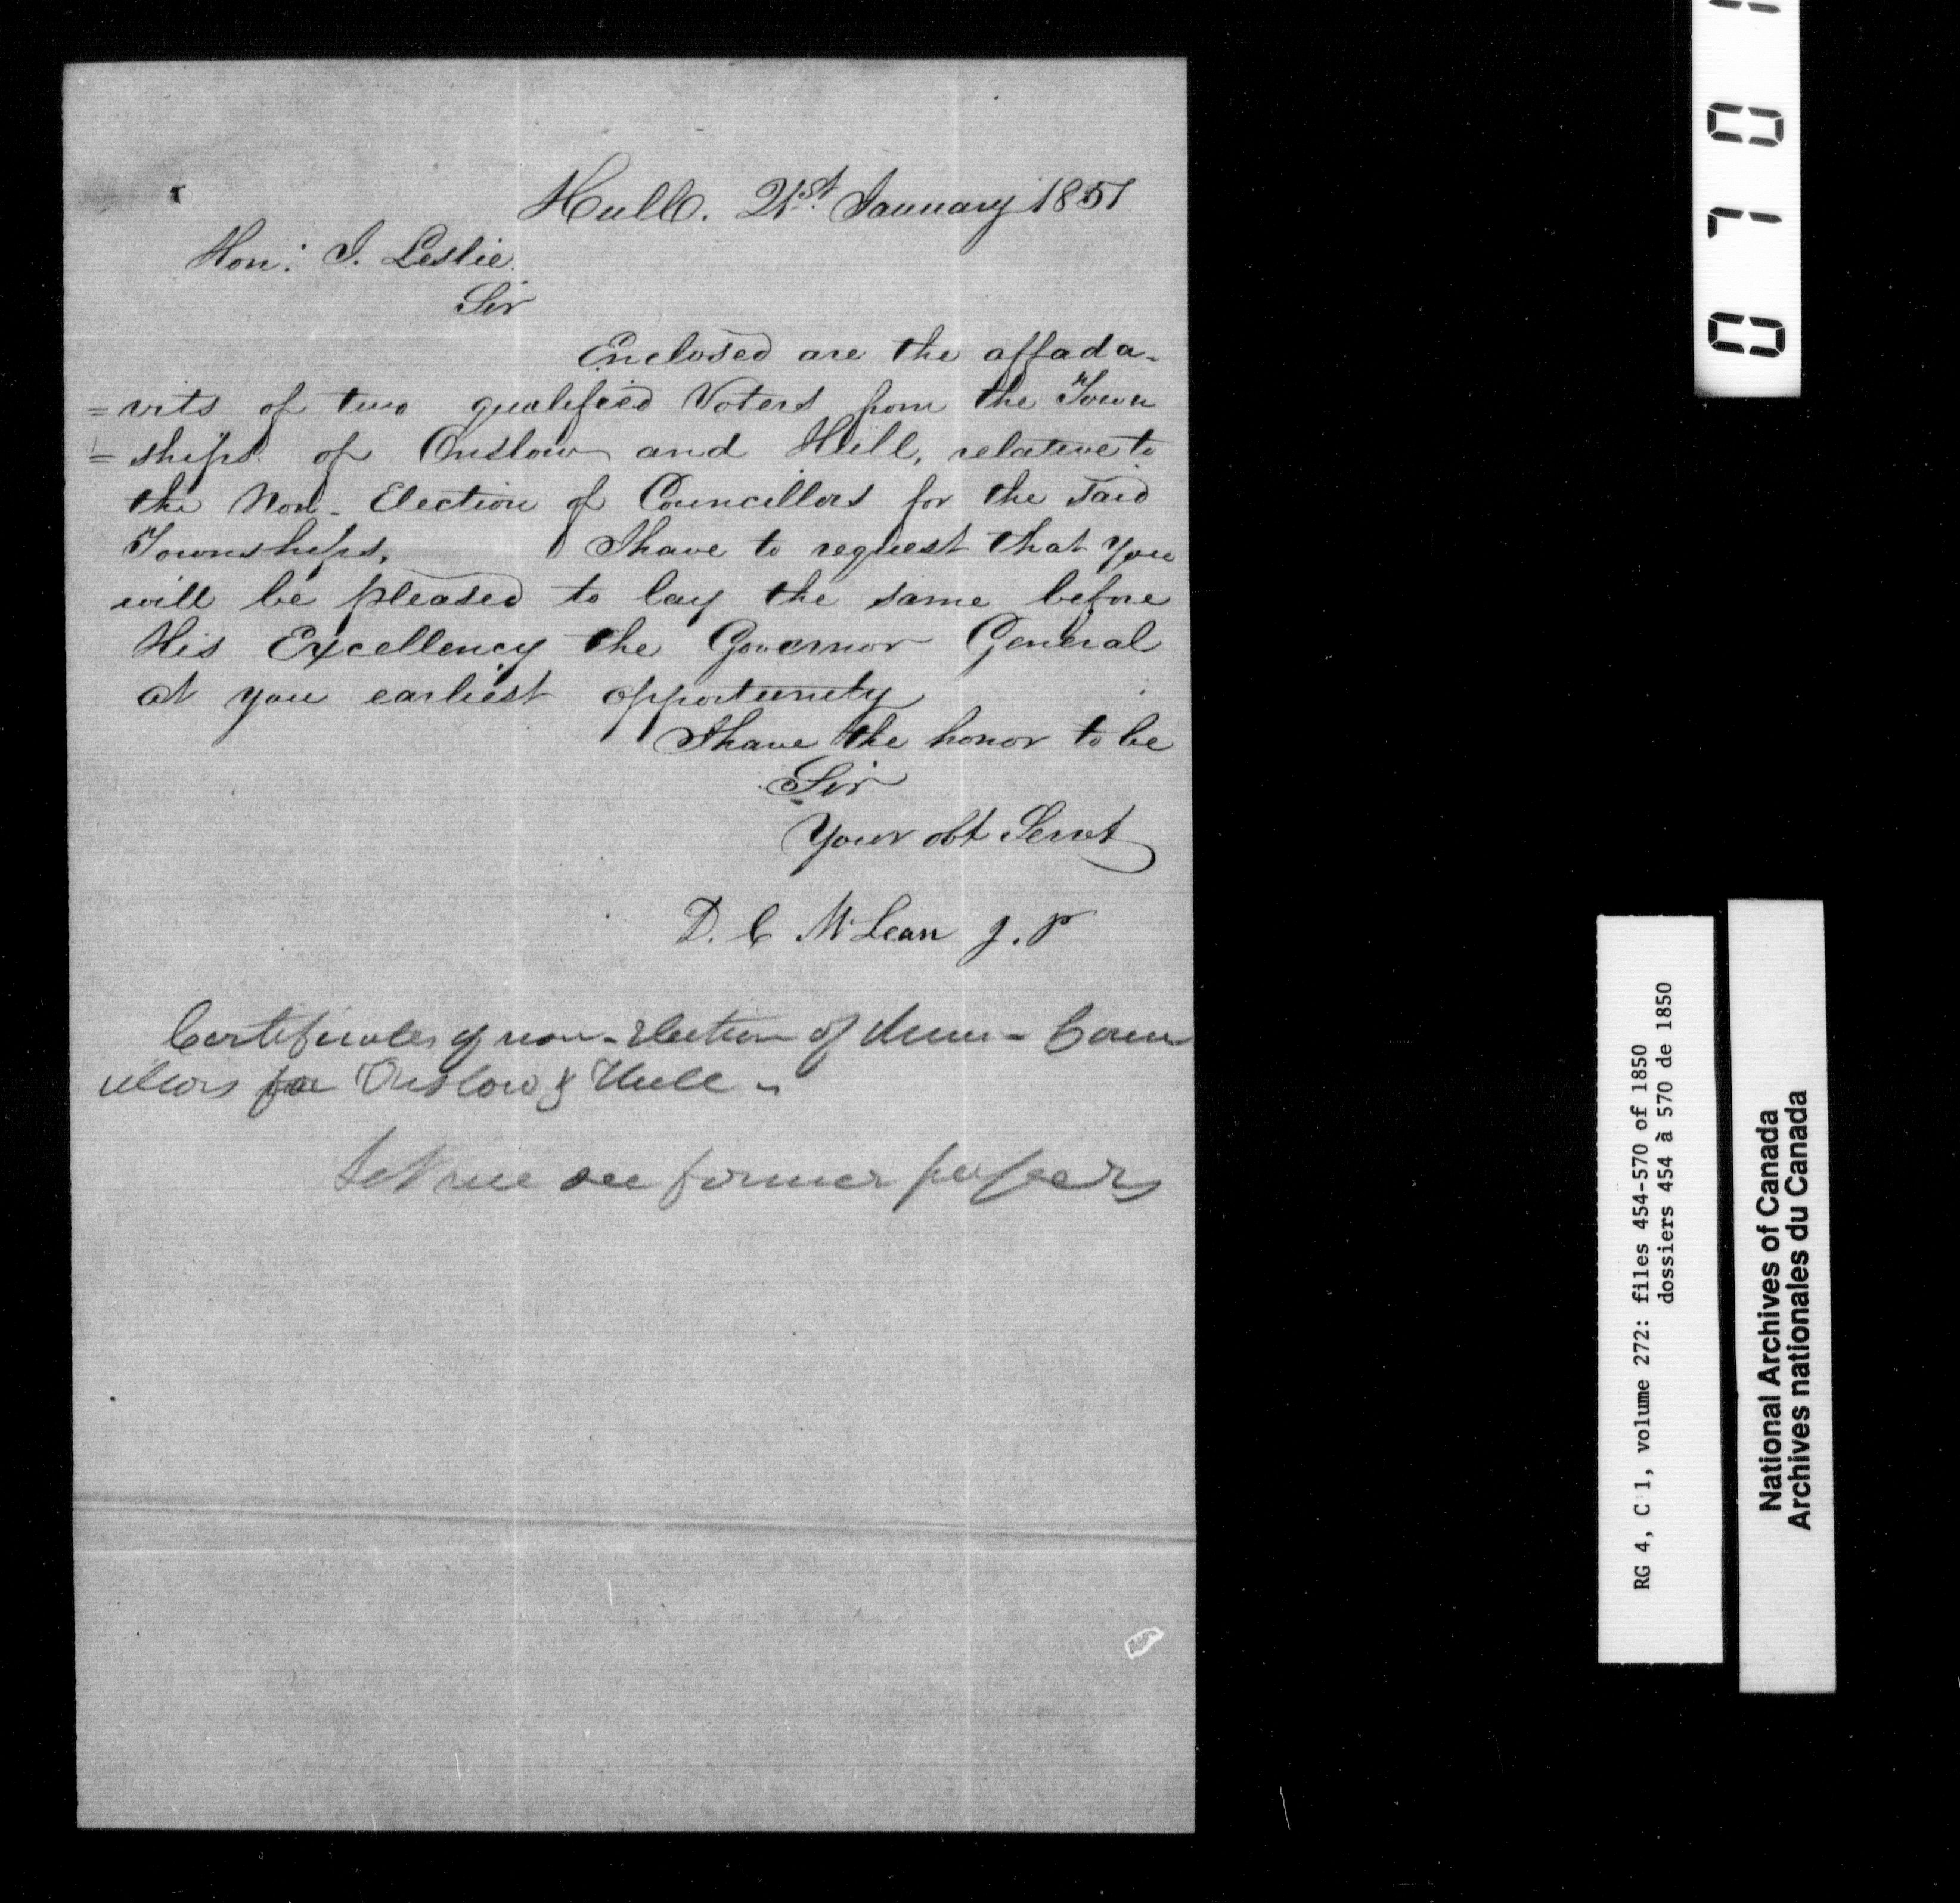 Hull. 21st January 1851
Hon: J. Leslie.
Sir
Enclosed are the affada-
=vits of two qualified Voters from the Town
=ships of Onslow and Hull, relative to
the Non-Election of Councillors for the said
Townships. I have to request that you
will be pleased to lay the same before
His Excellency the Governor General
at you earliest opportunity
I have the honor to be
Sir
Your obt Servt
D. C McLean J. P
Certificates of non-Election of Mun- Coun
cillors for Onslow & Hull -
Let me see former papers
0701
RG 4, C 1, volume 272: files 454-570 of 1850
dossiers 454 à 570 de 1850
National Archives of Canada
Archives nationales du Canada